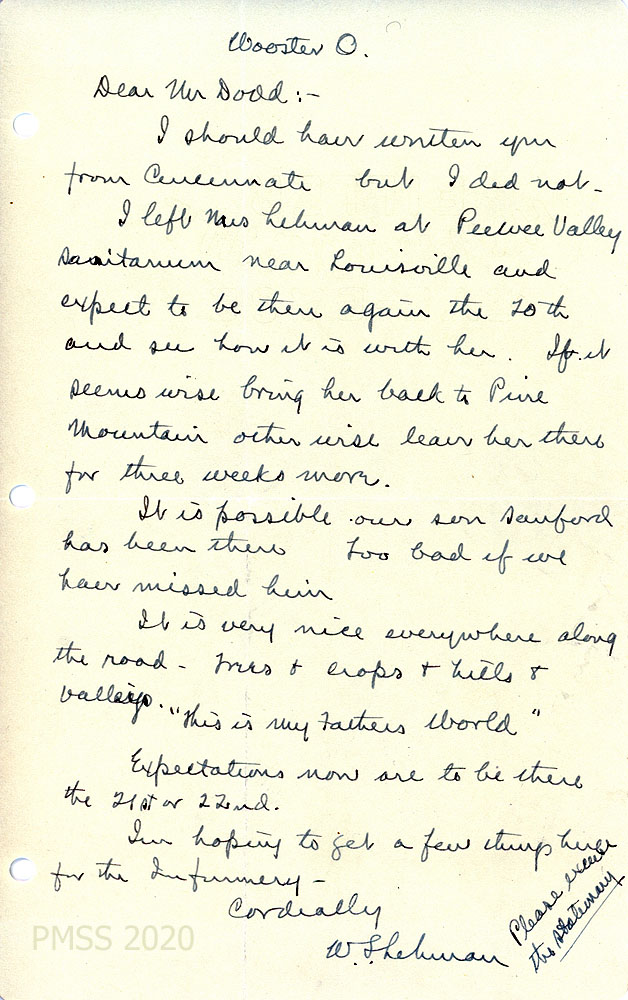 Wooster O.
Dear Mr Dodd:-
I should have written you
from Cincinnate but I did not-
I left Mrs Lehman at Peewee Valley
sanitarium near Louisville and
expect to be there again the 20th
and see how it is with her. If it
seems wise bring her back to Pine
Mountain other wise leave her there
for three weeks more.
It is possible our son Sanford
has been there Too bad if we
have missed him
It is very nice everywhere along
the road - trees & crops & hills &
valleys. "This is my Fathers World"
Expectations now are to be there
the 21st or 22nd.
I'm hoping to get a few things here
for the Infirmery-
Cordially
W. S. Lehman
Please excuse
this stationary
PMSS 2020